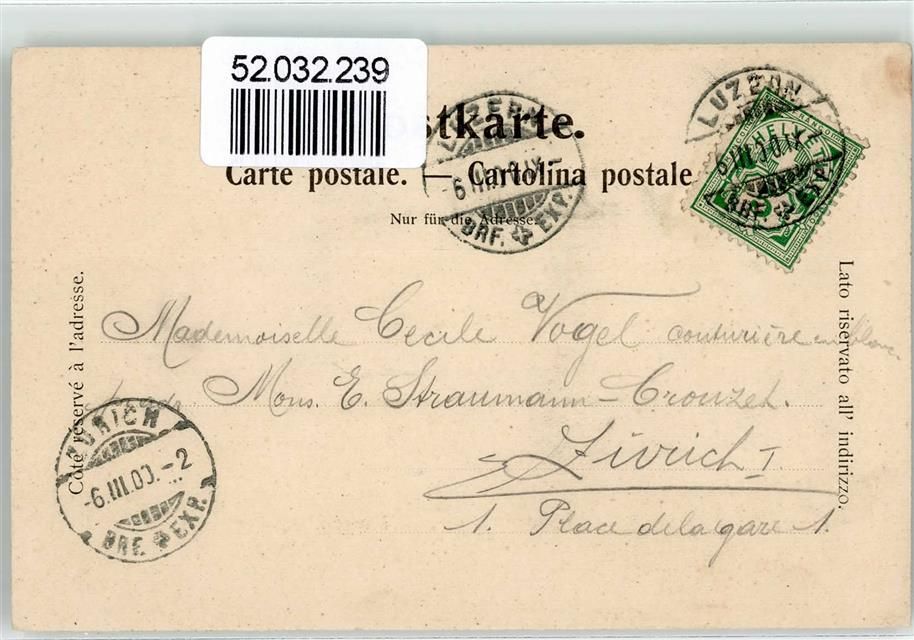 52.032.239
stkarte.
Carte postale. — Cartolina postale
Nur für die Adresse.
LUZERN
-6.III.00.IX-
BRF. EXP.
LUZERN
6.III.00.IX
BRF. EXP.
FRANCO HELVETIA
Côté réservé à l'adresse.
Lato riservato all' indirizzo.
Mademoiselle Cecile Vogel couturière en blanc
Mons. E. Straumann-Crouzet.
Zürich I.
1. Place de la gare 1.
ZÜRICH
-6.III.00.-2
BRF. EXP.